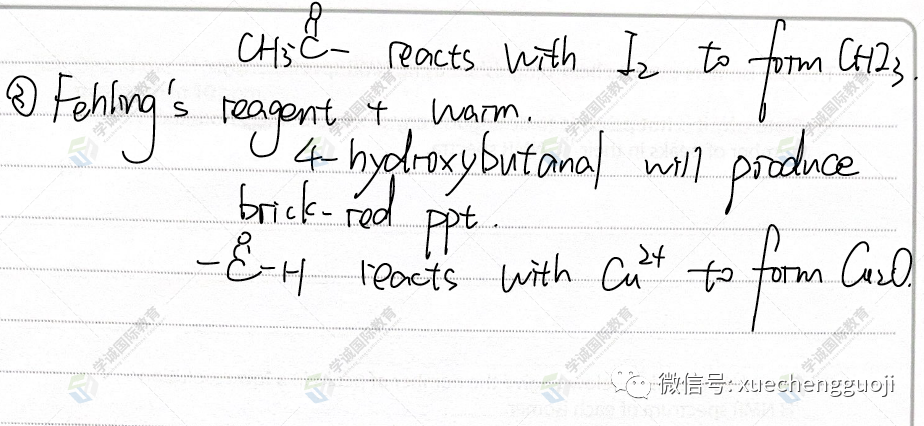 CH3C(=O)- reacts with I2 to form CHI3.
② Fehling's reagent + warm.
4-hydroxybutanal will produce
brick-red ppt.
-C(=O)-H reacts with Cu2+ to form Cu2O.
学诚国际教育
微信号: xuechengguoji